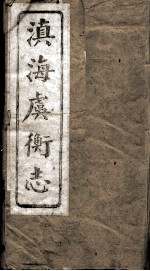 滇海虞衡志